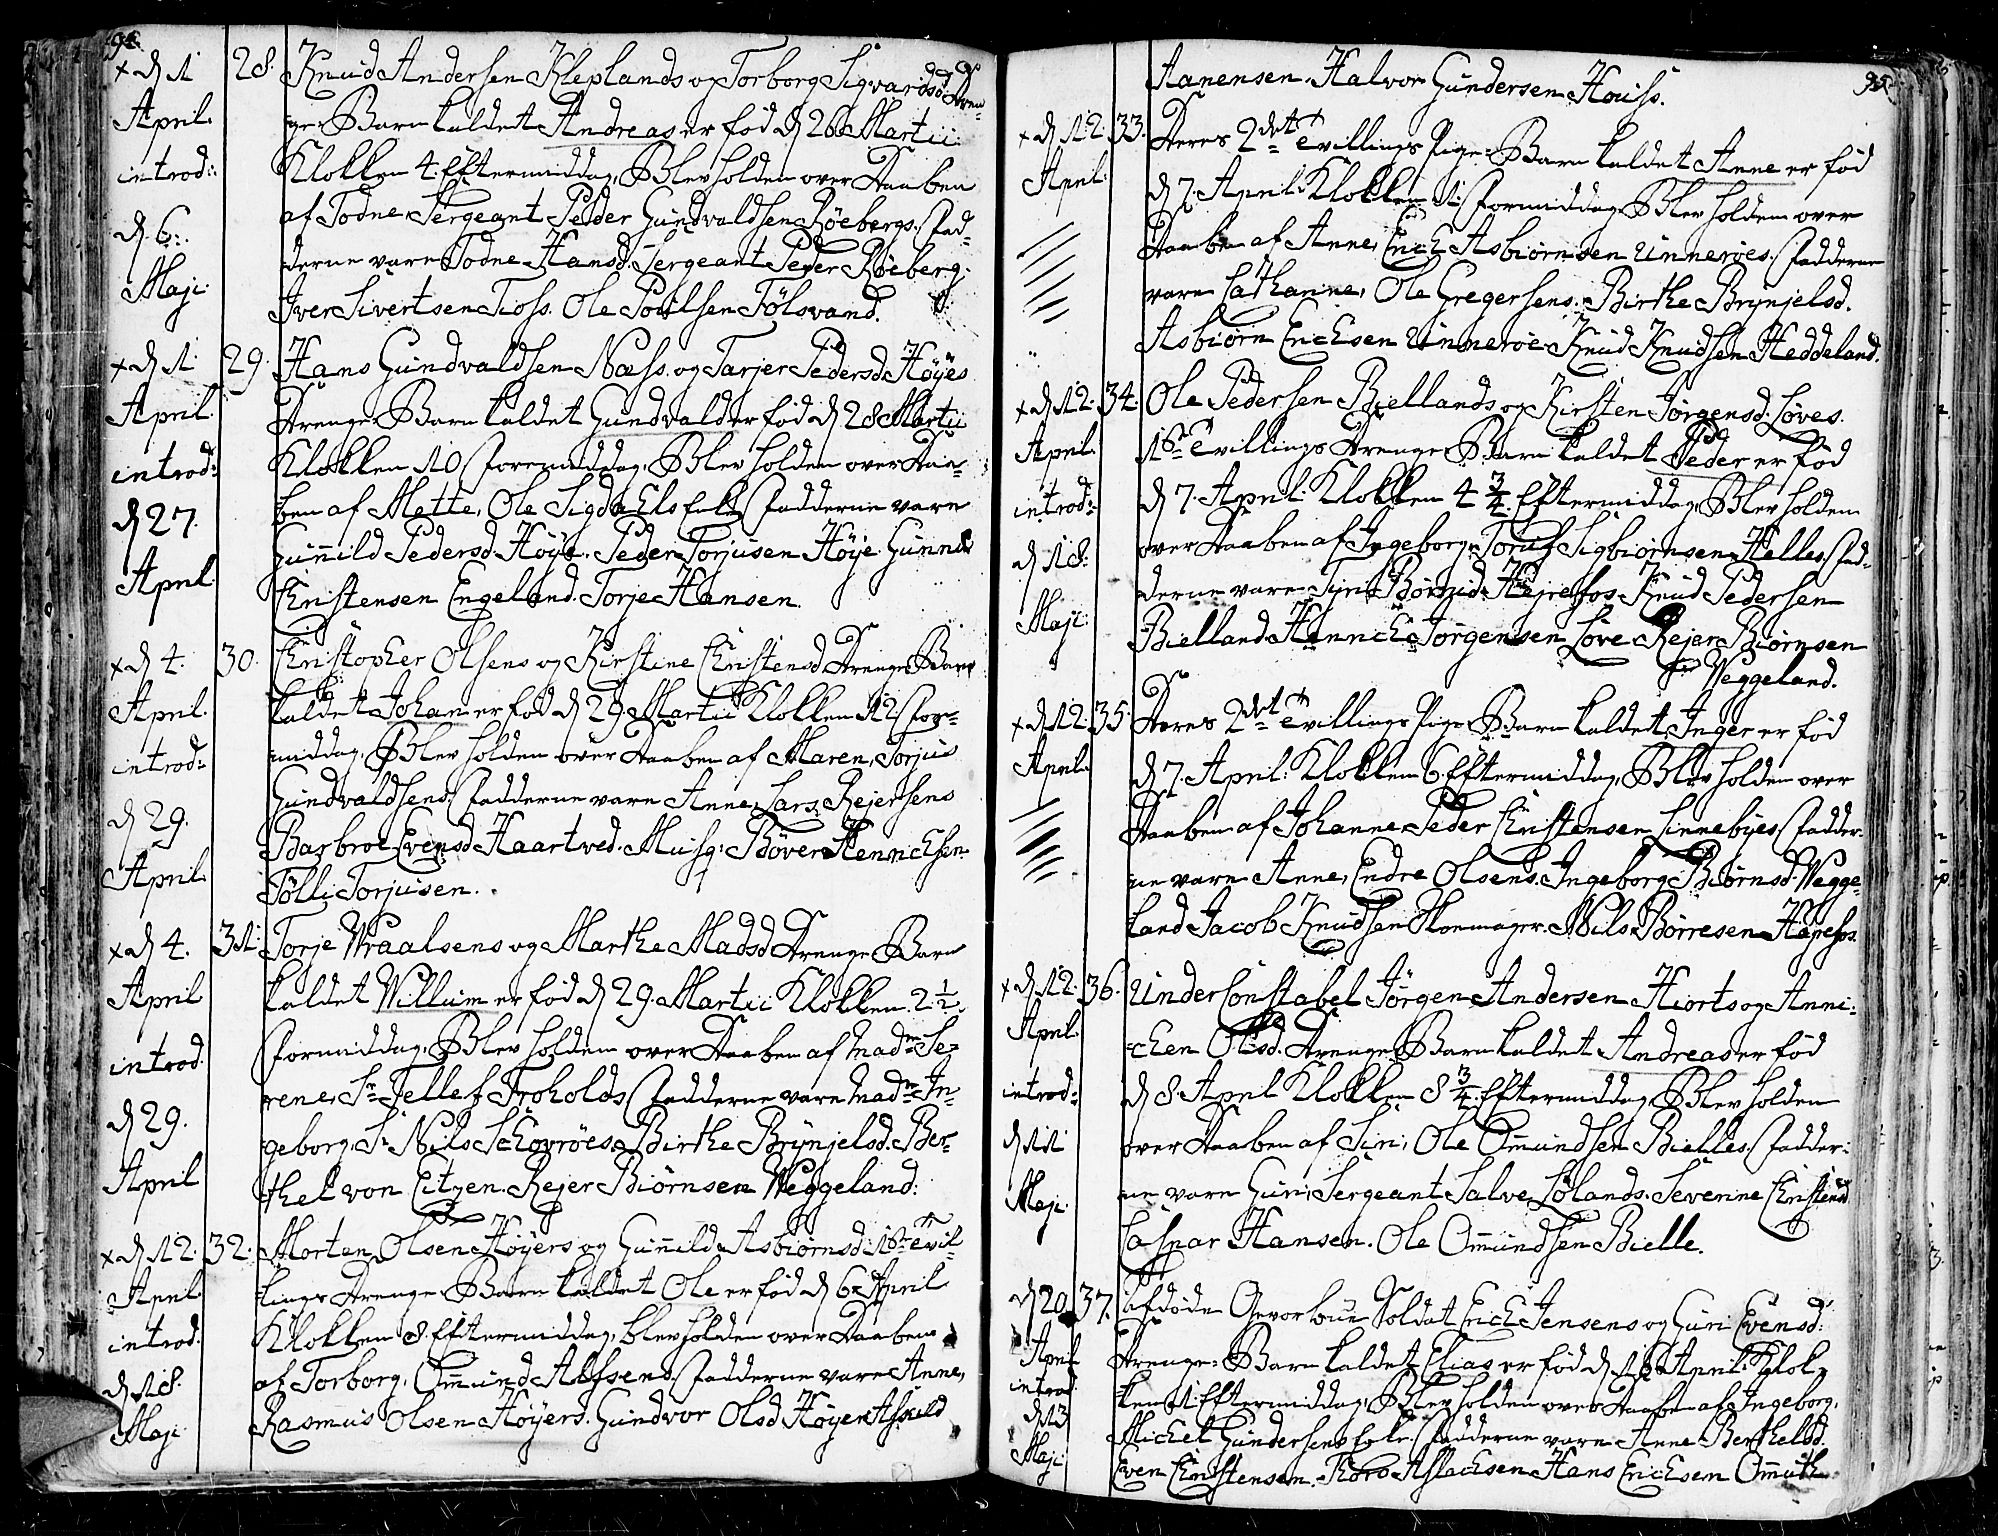 94.
× d. 1 April. introd: d. 6. Maji
28. Knud Andersen Kleplands og Torborg Sigvardsd. Dren-
ge-Barn kaldet Andreas er fød d. 26 Martii
Klokken 4. Eftermiddag. Blev holden over Daaben
af Todne, Sergeant Peder Gundvaldsen Röebergs. Fad-
derne vare Todne Hansd. Sergeant Peder Röeberg.
Iver Sivertsen Tioss. Ole Poulsen Fölsvand.
× d. 1. April. introd: d. 27. April
29. Hans Gundvaldsen Næss. og Tarjer Pedersd. Höyes
Drenge-Barn kaldet Gundvald er fød d. 28 Martii
Klokken 10 Formiddag. Blev holden over Daa-
ben af Mette, Ole Enke Fadderne vare
Gunnild Pedersd. Höye. Peder Torjusen Höye. Gunne
Christensen Engeland. Torje Hansen.
× d. 4. April. introd: d. 29. April.
30. Christopher Olsens og Kirstine Christensd. Drenge-Barn
kaldet Johan er fød d. 29. Martii Klokken 12 For-
middag. Blev holden over Daaben af Maren, Torjus
Gundvaldsens. Fadderne vare Anne, Lars Rejersens
Barbroe Evensd. Haartved. Musq: Böver Hennichsen
Tölli Torjusen.
× d. 4. April introd. d. 29. April
31. Torje Wraalsens og Marthe Madsd. Drenge-Barn
kaldet Willum er fød d. 29. Martii Klokken 2 1/2
Formiddag. Blev holden over Daaben af Madm Se-
rene, Sr Jellef Froholds. Fadderne vare Madm In-
geborg, Sr Nils Schovröes. Birthe Brynjelsd. Ber-
thel von Eitzen. Rejer Biörnsen Weggeland.
× d. 12. April introd. d. 18. Maji
32. Morten Olsen Höyers og Gunnild Asbiörnsd. 1ste Tvil-
lings Drenge-Barn kaldet Ole er fød d. 6 April
Klokken 8. Eftermiddag, blev holden over Daaben
af Torborg, Omund Fadderne vare Anne,
Rasmus Olsen Höyers. Gundvor Olsd. Höyer
95.
Aanensen. Halvor Gundersen Houss.
× d. 12. April.
33. Deres 2det Tvillings Pige-Barn kaldet Anne er fød
d. 7. April Klokken 1. Formiddag. Blev holden over
Daaben af Anne, Erich Asbiörnsen Unneröes. Fadderne
vare Cathanine, Ole Gregersens. Birthe Brynjelsd.
Asbiörn Erichsen Unneröe. Knud Knudsen Heddeland.
× d. 12. April. introd: d. 18. Maji.
34. Ole Pedersen Biellands og Kirsten Jörgensd. Löves.
1ste Tvillings Drenge-Barn kaldet Peder er fød
d. 7. April. Klokken 4 3/4 Eftermiddag. Blev holden
over Daaben af Ingeborg, Toruf Sigbiörnsen Helles. Fad-
derne vare Siri Knud Pedersen
Bielland. Hennich Jörgensen Löve. Rejer Biörnsen
Weggeland.
× d. 12. April.
35. Deres 2det Tvillings Pige-Barn kaldet Inger er fød
d. 7. April. Klokken 6 Eftermiddag. Blev holden over
Daaben af Johanne, Peder Christensen Linnebyes. Fadder-
ne vare Anne, Endre Olsens. Ingeborg Biörnsd. Wegge-
land. Jacob Knudsen Skomager. Nils Börresen
× d. 12. April. introd: d. 11 Maji
36. Underconstabel Jörgen Andersen Hiorts og Anni-
chen Olisd. Drenge-Barn kaldet Andreas er fød
d. 8. April Klokken 8 3/4 Eftermiddag. Blev holden
over Daaben af Siri, Ole Omundsen Bielles. Fadder-
ne vare Guri, Sergeant Salve Lölands. Severine Christensd.
Caspar Hansen. Ole Omundsen Bielle.
d. 20. April introd. d. 13 Maji
37. Afdöde Gevorbne Soldat Erich Jensens og Guri Evensd.
Drenge-Barn kaldet Elias er fød d. 16 April. Klok-
ken 1. Eftermiddag. Blev holden over Daaben af Ingeborg,
Michel Gundersens Enke. Fadderne vare Anne Berthelsd.
Even Christensen. Thoro Aslachsen. Hans Erichsen